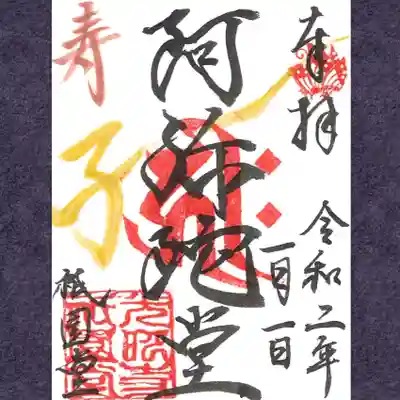 奉拝
令和二年
一月一日
阿弥陀堂
寿
子
祇園堂